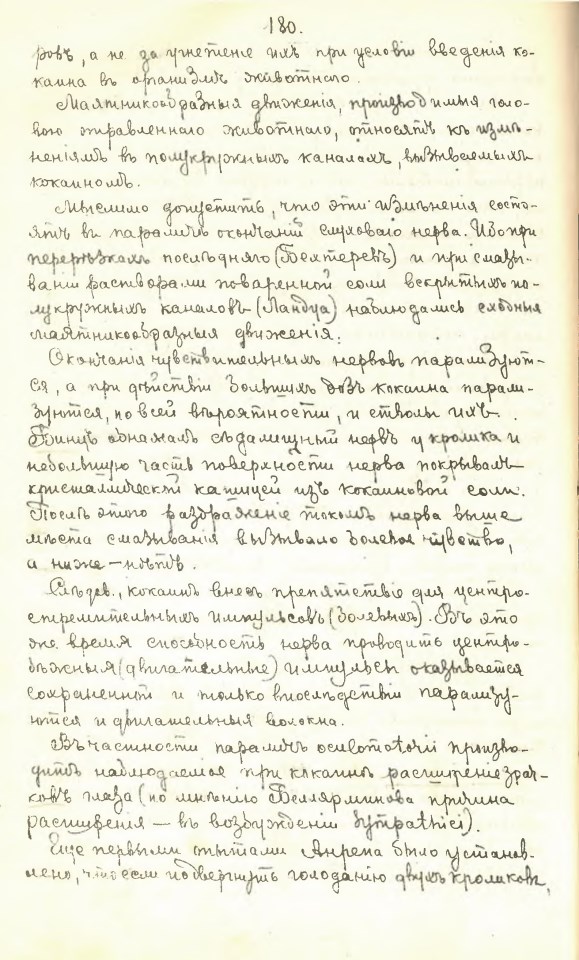 180.
ровъ, а не за угнетенiе ихъ при условiи введенiя ко-
каина въ организмъ животнаго.
Маятникообразныя движенiя, производимыя голо-
вою отравленнаго животнаго, относятъ къ измѣ-
ненiямъ въ полукружныхъ каналахъ, вызываемыхъ
кокаиномъ.
Мыслимо допустить, что эти измѣненiя состо-
ятъ въ параличѣ окончанiй слуховаго нерва. Ибо при
перерѣзкахъ послѣдняго (Бехтеревъ) и при смазы-
ванiи растворами поваренной соли вскрытыхъ по-
лукружныхъ каналовъ (Ландуа) наблюдались сходныя
маятникообразныя движенiя.
Окончанiя чувствительныхъ нервовъ парализуют-
ся, а при дѣйствiи большихъ дозъ кокаина парали-
зуются, по всей вѣроятности, и стволы ихъ.
Бинцъ обнажалъ сѣдалищный нервъ у кролика и
небольшую часть поверхности нерва покрывалъ
кристаллической кашицей изъ кокаиновой соли.
Послѣ этого раздраженiе токомъ нерва выше
мѣста смазыванiя вызывало болевое чувство,
а ниже — нѣтъ.
Слѣдов., кокаинъ внесъ препятствiе для центро-
стремительныхъ импульсовъ (болевыхъ). Въ это
же время способность нерва проводить центро-
бѣжныя (двигательные) импульсы оказывается
сохраненной и только впослѣдствiи парализу-
ются и двигательныя волокна.
Въ частности параличъ oculomotorii произво-
дитъ наблюдаемое при кокаинѣ расширенiе зрач-
ковъ глаза (по мнѣнiю Беллярминова причина
расширенiя — въ возбужденiи sympathici).
Еще первыми опытами Анрепа было установ-
лено, что если подвергнуть голоданiю двухъ кроликовъ,